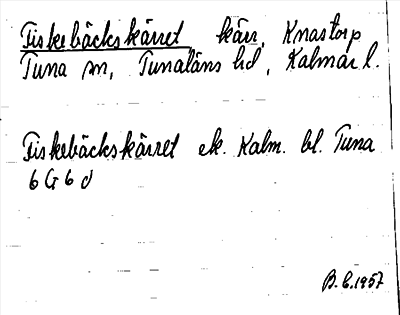 Fiskebäckskärret, kärr, Knastorp
Tuna sn, Tunaläns hd, Kalmar l.
Fiskebäckskärret ek. Kalm. bl. Tuna
6 G 6 d
B. E. 1957